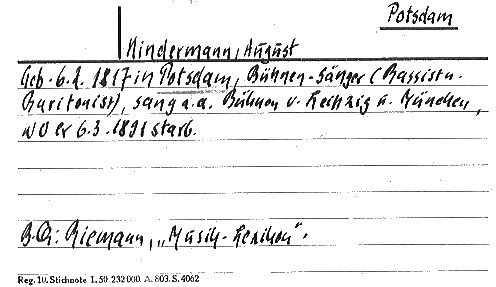 Potsdam
Kindermann, August
Geb. 6.2. 1817 in Potsdam, Bühnen-Sänger (Bassist u.
Baritonist), sang a.d. Bühnen v. Leipzig u. München,
wo er 6.3.1891 starb.
B.Qu: Riemann, „Musik-Lexikon".
Reg. 10. Stichnote 1. 50 232000. A. 803. S. 4062